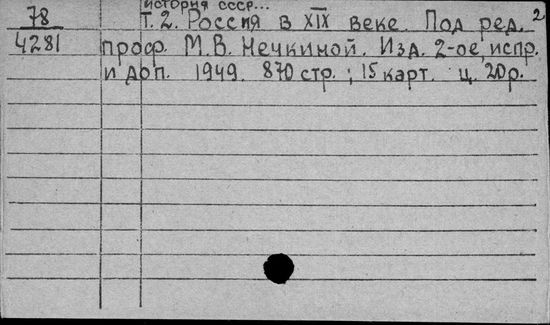 история СССР...
78 Т. 2. Россия в XIX веке. Под ред. 2
4281 проф. М.В. Нечкиной. Изд. 2-ое испр.
и доп. 1949. 870 стр.; 15 карт. ц. 20 р.